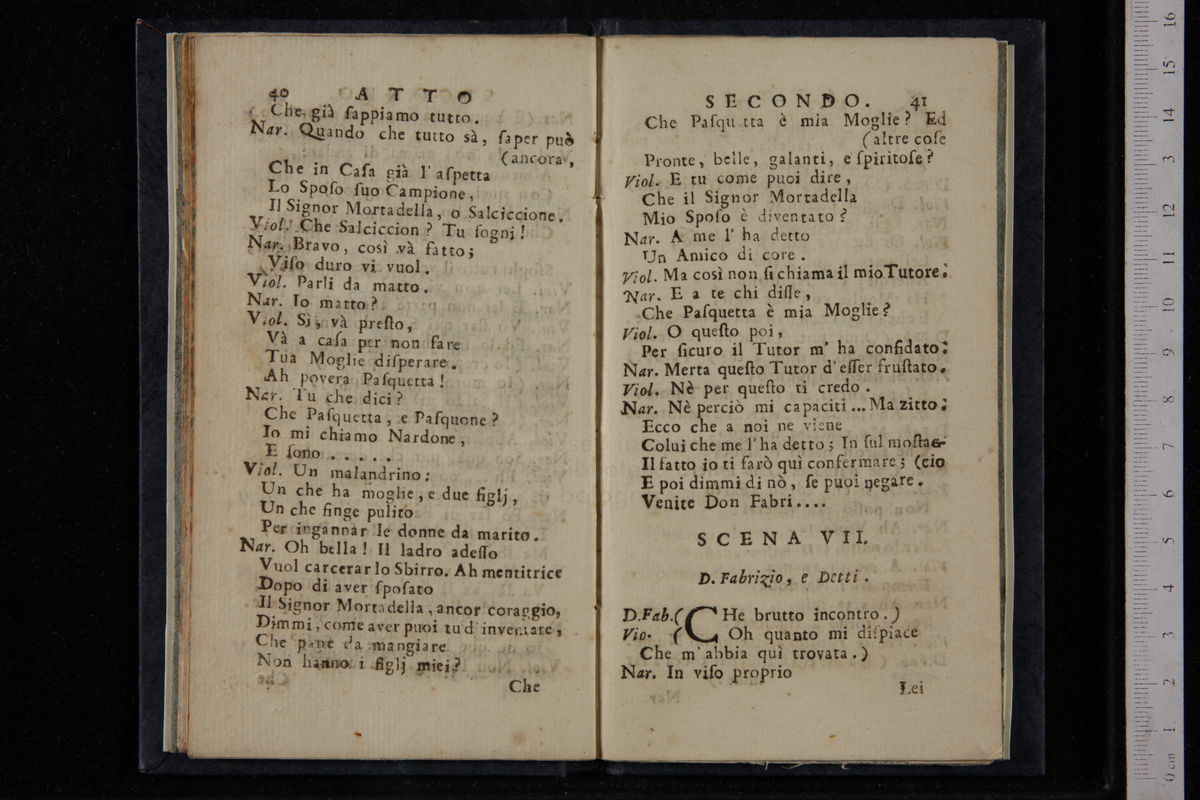 40 ATTO
Che già ſappiamo tutto.
Nar. Quando che tutto sà, ſaper può
(ancora,
Che in Caſa già l'aſpetta
Lo Spoſo ſuo Campione,
Il Signor Mortadella, o Salciccione.
Viol. Che Salciccion? Tu ſogni!
Nar. Bravo, così và fatto;
Viſo duro vi vuol.
Viol. Parli da matto.
Nar. Io matto?
Viol. Sì, và preſto,
Và a caſa per non fare
Tua Moglie diſperare.
Ah povera Paſquetta!
Nar. Tu che dici?
Che Paſquetta, e Paſquone?
Io mi chiamo Nardone,
E ſono . . . . .
Viol. Un malandrino:
Un che ha moglie, e due figlj,
Un che finge pulito
Per ingannar le donne da marito.
Nar. Oh bella! Il ladro adeſſo
Vuol carcerar lo Sbirro. Ah mentitrice
Dopo di aver ſpoſato
Il Signor Mortadella, ancor coraggio,
Dimmi, come aver puoi tu d'inventare,
Che pane da mangiare
Non hanno i figlj miei?
Che
SECONDO. 41
Che Paſquetta è mia Moglie? Ed
(altre coſe
Pronte, belle, galanti, e ſpiritoſe?
Viol. E tu come puoi dire,
Che il Signor Mortadella
Mio Spoſo è diventato?
Nar. A me l'ha detto
Un Amico di core.
Viol. Ma così non ſi chiama il mio Tutore.
Nar. E a te chi diſſe,
Che Paſquetta è mia Moglie?
Viol. O queſto poi,
Per ſicuro il Tutor m'ha confidato.
Nar. Merta queſto Tutor d'eſſer fruſtato.
Viol. Nè per queſto ti credo.
Nar. Nè perciò mi capaciti... Ma zitto:
Ecco che a noi ne viene
Colui che me l'ha detto; In ſul moſtac-
Il fatto io ti farò quì confermare; (cio
E poi dimmi di nò, ſe puoi negare.
Venite Don Fabri....
SCENA VII.
D. Fabrizio, e Detti.
D.Fab. (CHe brutto incontro.)
Vio. (Oh quanto mi diſpiace
Che m'abbia quì trovata.)
Nar. In viſo proprio
Lei
0 cm 1 2 3 4 5 6 7 8 9 10 11 12 3 14 15 16